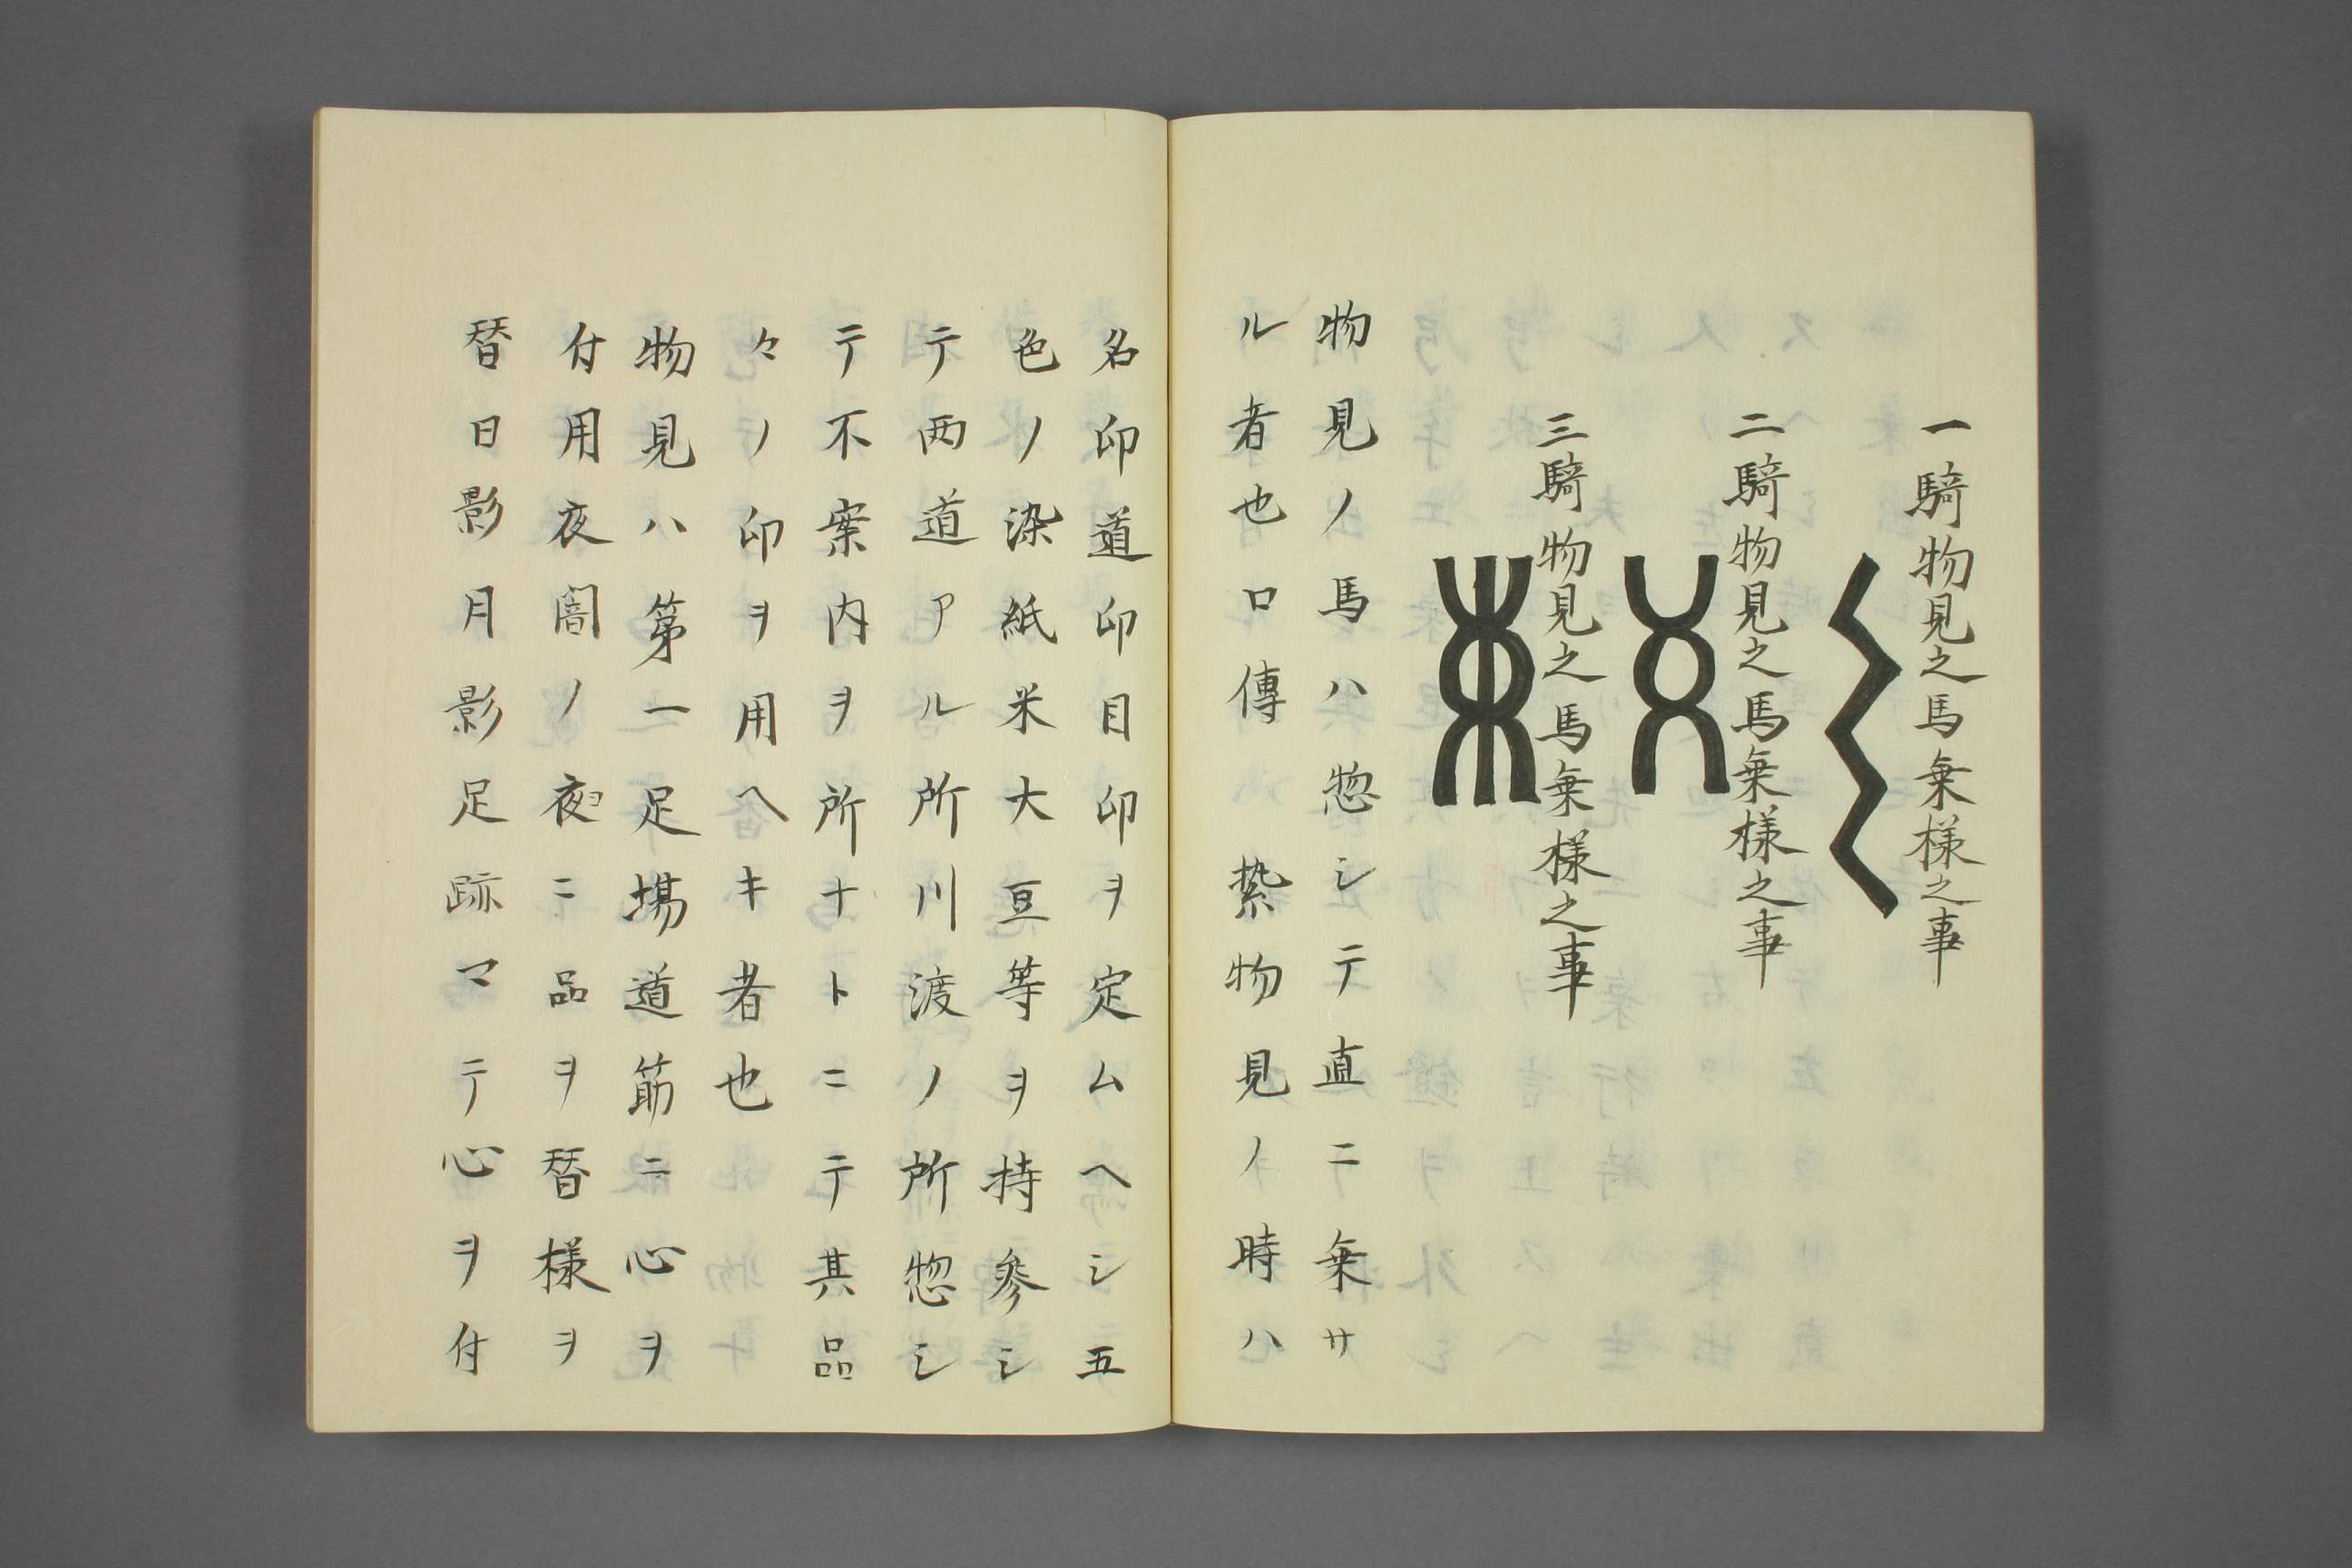 一騎物見之馬乗様之事
二騎物見之馬乗様之事
三騎物見之馬乗様之事
物見ノ馬ハ惣シテ直ニ乗サ
ル者也口傳 紮物見ノ時ハ
名印道印目印ヲ定ムヘシ五
色ノ染紙米大豆等ヲ持参シ
テ両道アル所川渡ノ所惣シ
テ不案内ヲ所ナトニテ其品
々ノ印ヲ用ヘキ者也
物見ハ第一足場道筋ニ心ヲ
付用夜闇ノ夜ニ品ヲ替様ヲ
替日影月影足跡マテ心ヲ付